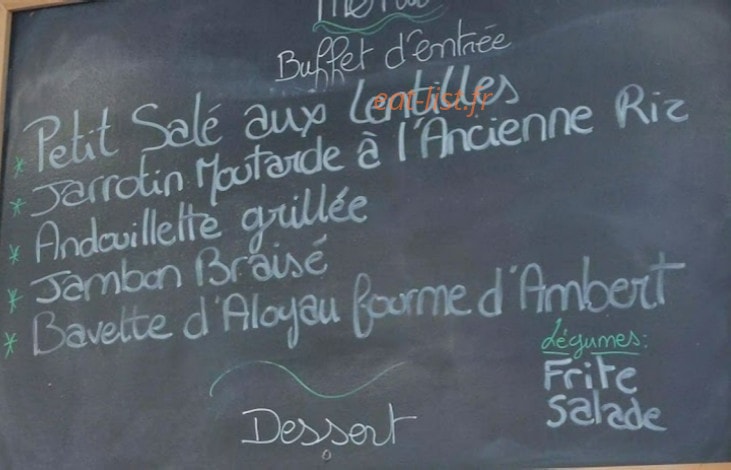 Menu
Buffet d'entrée
* Petit Salé aux Lentilles
eat-list.fr
* Jarrotin Moutarde à l'Ancienne Riz
* Andouillette grillée
* Jambon Braisé
* Bavette d'Aloyau fourme d'Ambert
Légumes:
Frite
Salade
Dessert